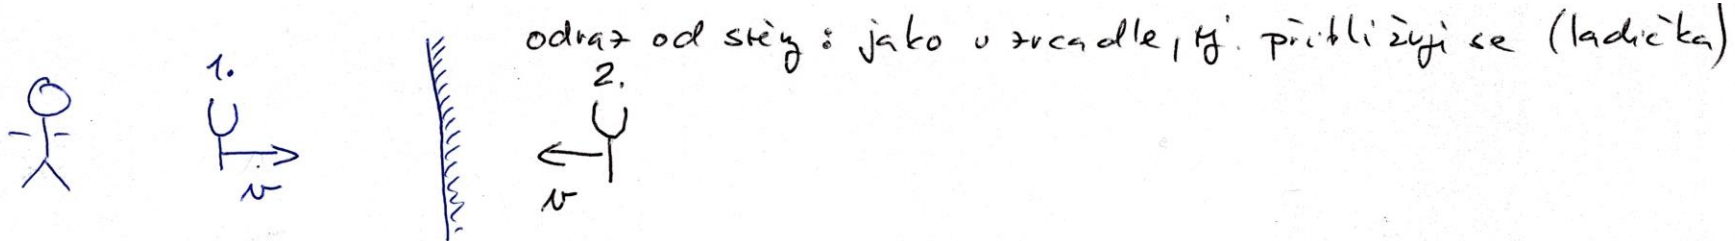 odraz od stěny : jako v zrcadle, tj. přibližuji se (ladička)
1.
2.
v
v